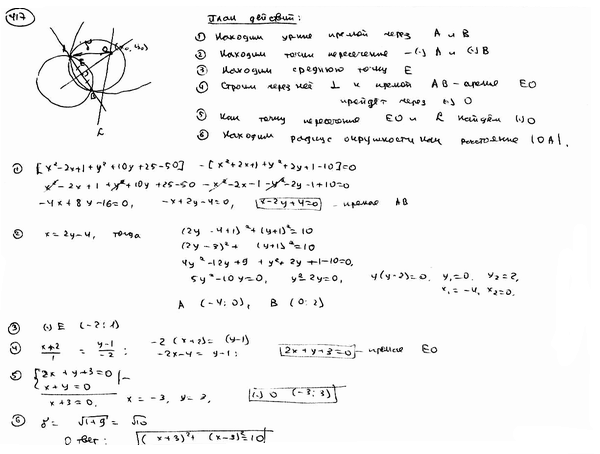 417
План действий:
① Находим ур-ние прямой через А и В
② Находим точки пересечение – (·) А и (·) В
③ Находим среднюю точку Е
④ Строим через неё ⊥ к прямой АВ – время ЕО
пройдёт через (·) О
⑤ Как точку пересечение ЕО и ℓ найдём (·) О
⑥ Находим радиус окружности как расстояние |ОА|.
① [x²-2x+1+y²+10y+25-50] - [x²+2x+1+y²+2y+1-10]=0
x²-2x+1+y²+10y+25-50-x²-2x-1-y²-2y-1+10=0
-4x+8y-16=0, -x+2y-4=0, x-2y+4=0 – прямая АВ
② x=2y-4, тогда (2y-4+1)²+(y+1)²=10
(2y-3)²+(y+1)²=10
4y²-12y+9+y²+2y+1-10=0,
5y²-10y=0, y²-2y=0, y(y-2)=0. y₁=0. y₂=2,
x₁=-4, x₂=0.
A (-4;0), B (0;2)
③ (·) E (-2;1)
④ x+2/1 = y-1/-2 ; -2(x+2)=(y-1)
-2x-4=y-1; 2x+y+3=0 – прямая ЕО
⑤ {2x+y+3=0
x+y=0
x+3=0, x=-3, y=3, (·) O (-3;3)
⑥ r= √1+9 = √10
Ответ: (x+3)²+(x-3)²=10